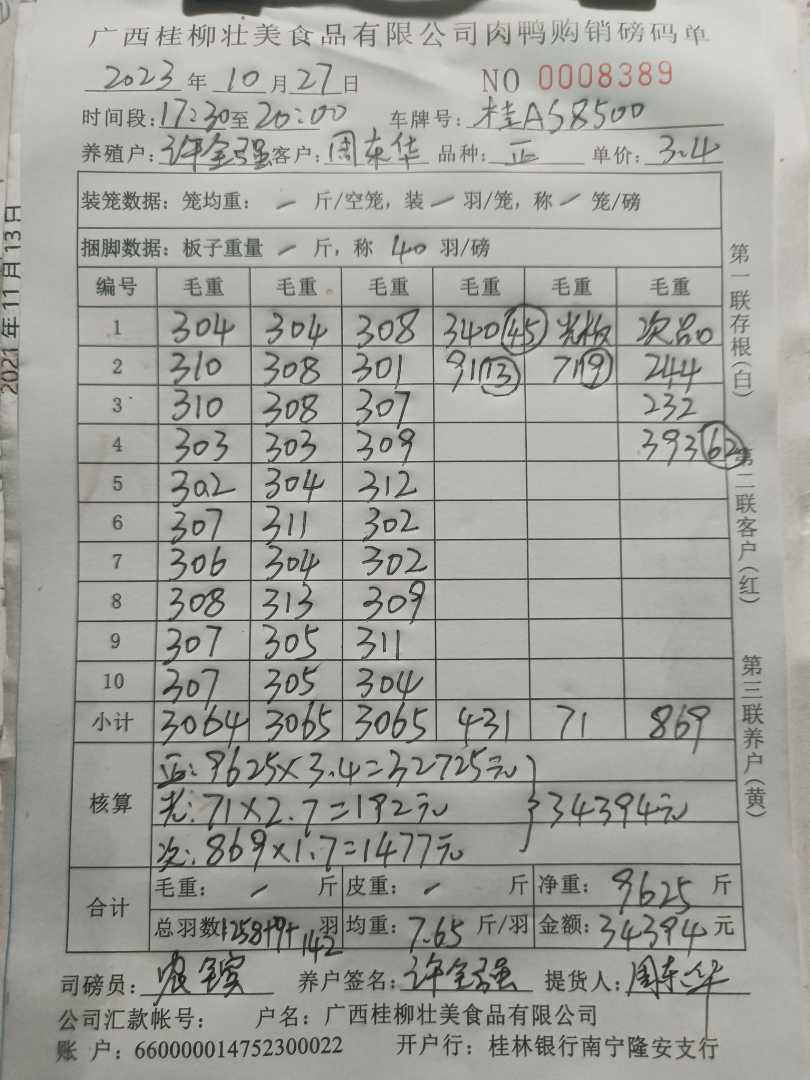 广西桂柳壮美食品有限公司肉鸭购销磅码单
2023年10月27日 NO 0008389
时间段:17:30至20:00 车牌号:桂AS8500
养殖户:许全强 客户:周东华 品种:正 单价:3.4
装笼数据: 笼均重: - 斤/空笼, 装 - 羽/笼, 称 - 笼/磅
捆脚数据: 板子重量 - 斤, 称 40 羽/磅
编号 毛重 毛重 毛重 毛重 毛重 毛重
1 304 304 308 340(45) 光板 次品
2 310 308 301 91(13) 71(9) 244
3 310 308 307 232
4 303 303 309 393(62)
5 302 304 312
6 307 311 302
7 306 304 302
8 308 313 309
9 307 305 311
10 307 305 304
小计 3064 3065 3065 431 71 869
核算
正:9625×3.4=32725元
光:71×2.7=192元 }34394元
次:869×1.7=1477元
合计
毛重: - 斤 皮重: - 斤 净重: 9625 斤
总羽数1258+9+142羽 均重: 7.65 斤/羽 金额: 34394 元
司磅员: 养户签名:许全强 提货人:周东华
公司汇款帐号: 户名:广西桂柳壮美食品有限公司
账 户:660000014752300022 开户行:桂林银行南宁隆安支行
第一联存根(白)
第二联客户(红)
第三联养户(黄)
2021年11月13日